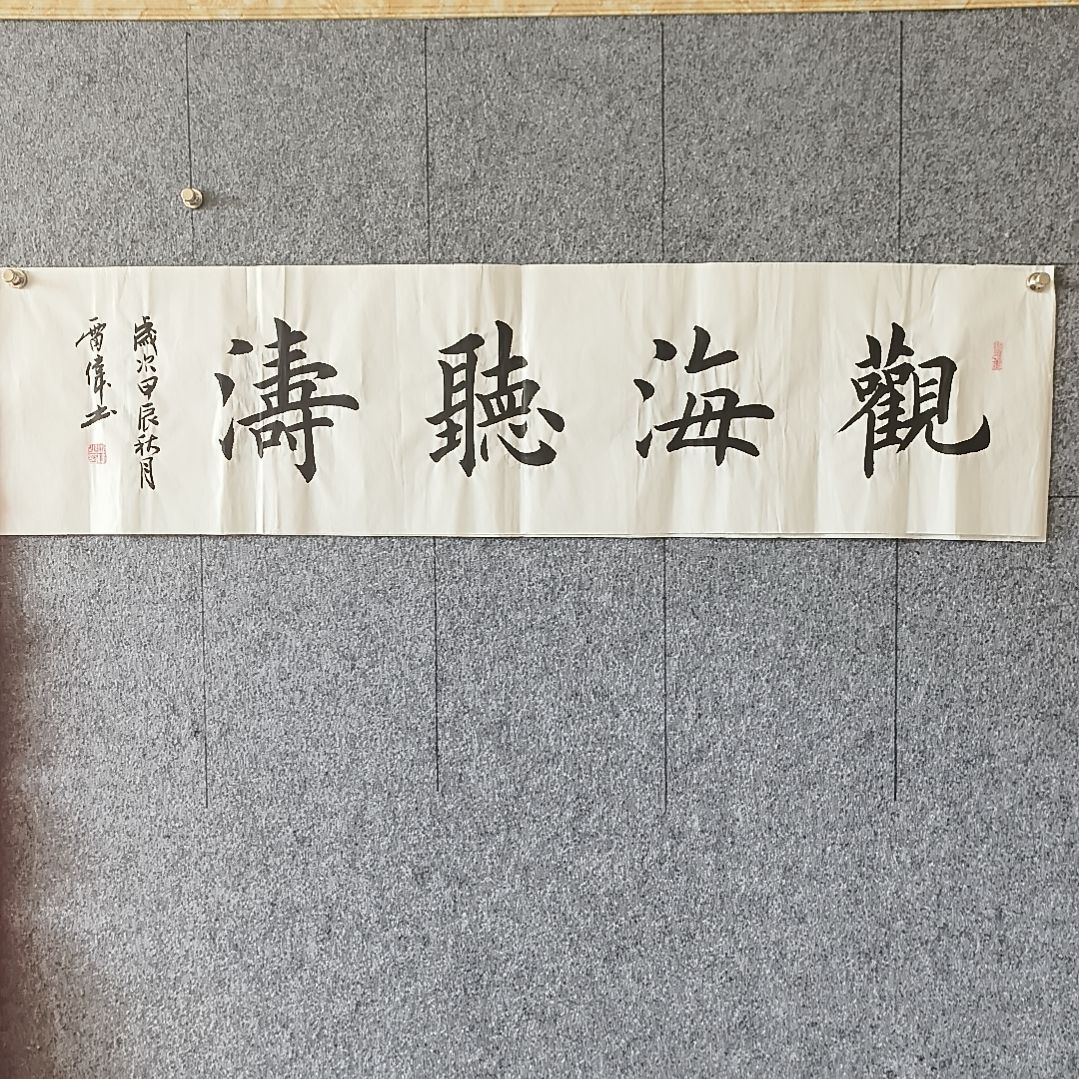 觀海聽濤
歲次甲辰秋月
雷偉书